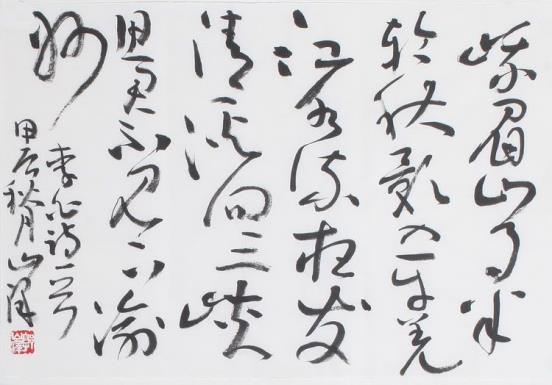 峨眉山月半
轮秋影入平羌
江水流夜发
清溪向三峡
思君不见下渝
州
李白诗一首
甲辰秋月山